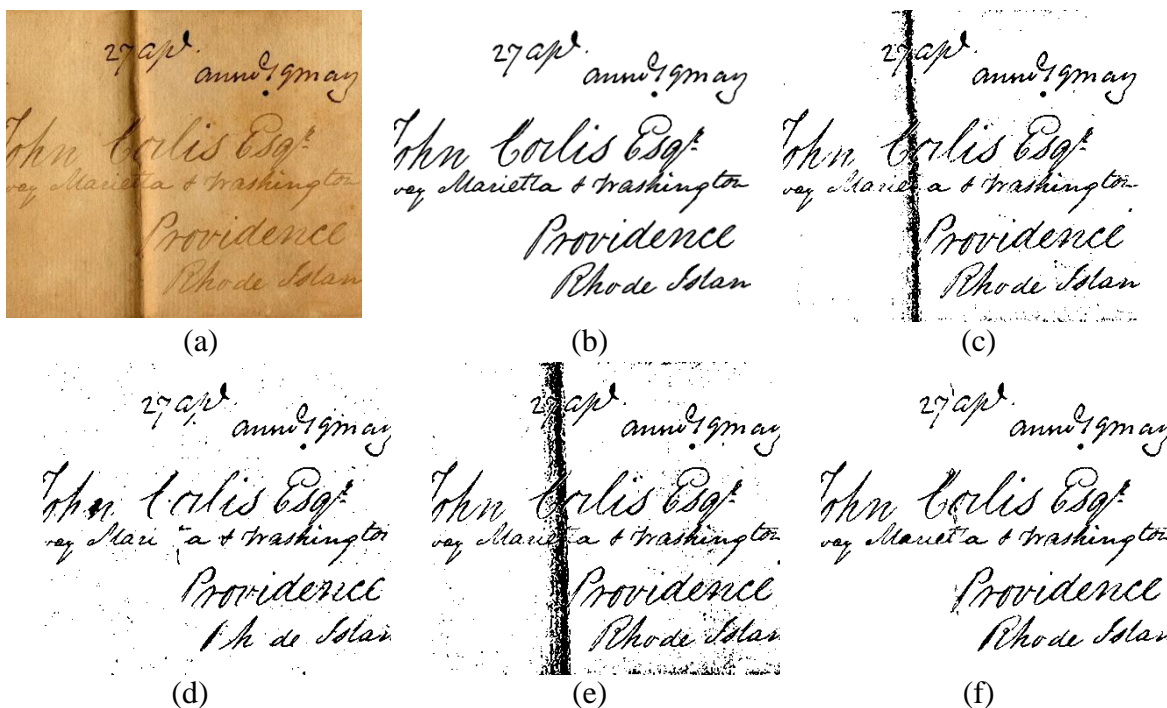 27 apl.
19 may
John Corlis Esqr.
Marietta & Washington
Providence
Rhode Islan
(a)
27 apl.
19 may
John Corlis Esqr.
Marietta & Washington
Providence
Rhode Islan
(b)
27 apl.
19 may
John Corlis Esqr.
Marie a & Washington
Providence
Rhode Islan
(c)
27 apl.
19 may
John Corlis Esqr.
Mari a & Washington
Providence
h de Islan
(d)
27 apl.
19 may
John Corlis Esqr.
Marietta & Washington
Providence
Rhode Islan
(e)
27 apl.
19 may
John Corlis Esqr.
Marietta & Washington
Providence
Rhode Islan
(f)